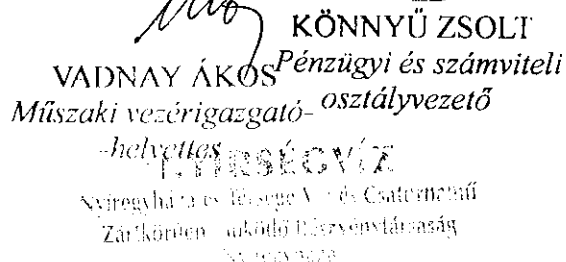 KÖNNYŰ ZSOLT
Pénzügyi és számviteli
osztályvezető
VADNAY ÁKOS
Műszaki vezérigazgató-
-helyettes
NYÍRSÉGVÍZ
Nyíregyháza és Térsége Víz- és Csatornamű
Zártkörűen Működő Részvénytársaság